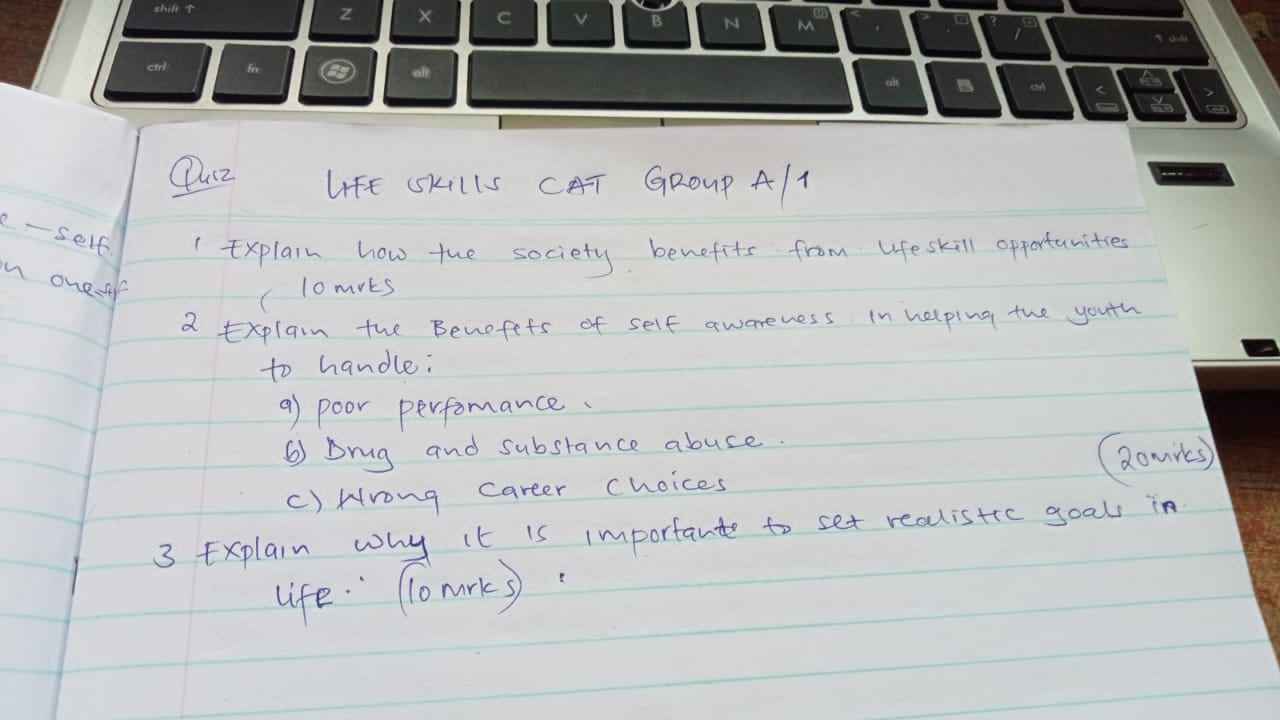 shift ↑ Z X C V B N M < , > . ? / ↑ shift
ctrl fn alt alt ctrl < >
Quiz LIFE SKILLS CAT GROUP A/1
e - self
1 Explain how the society benefits from life skill opportunities
10 mrks
2 Explain the Benefits of self awareness in helping the youth
to handle:
a) poor perfomance.
b) Drug and substance abuse.
(20 mrks)
c) Wrong Career Choices
3 Explain why it is importante to set realistic goals in
life. (10 mrks)